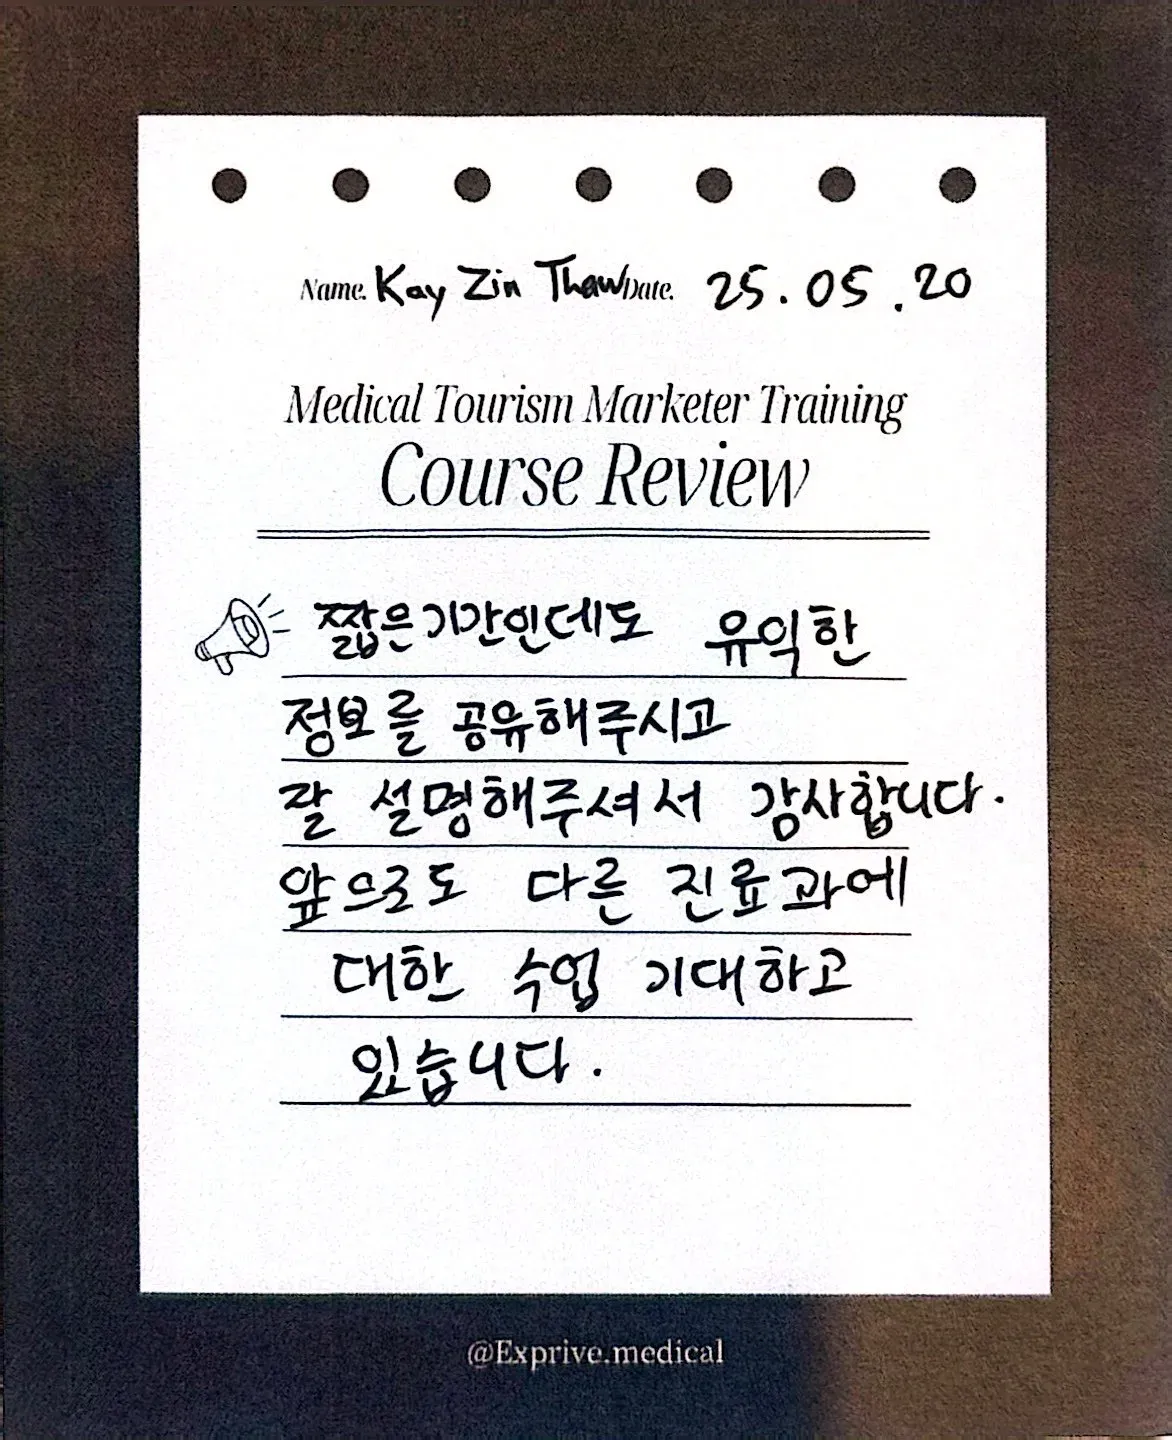 Name. Kay Zin Thaw Date. 25.05.20
Medical Tourism Marketer Training
Course Review
짧은기간인데도 유익한
정보를 공유해주시고
잘 설명해주셔서 감사합니다.
앞으로도 다른 진료과에
대한 수업 기대하고
있습니다.
@Exprive.medical